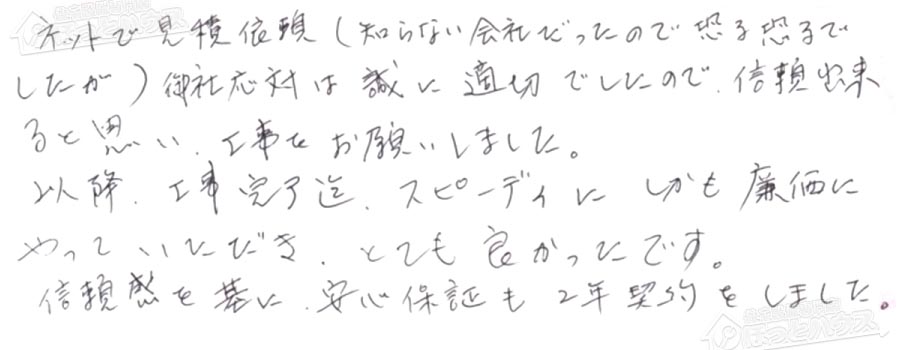 ネットで見積依頼(知らない会社だったので恐る恐るで
したが)御社応対は誠に適切でしたので、信頼出来
ると思い、工事をお願いしました。
以降、工事完了迄、スピーディに しかも廉価に
やっていただき、とても良かったです。
信頼感を基に、安心保証も2年契約をしました。